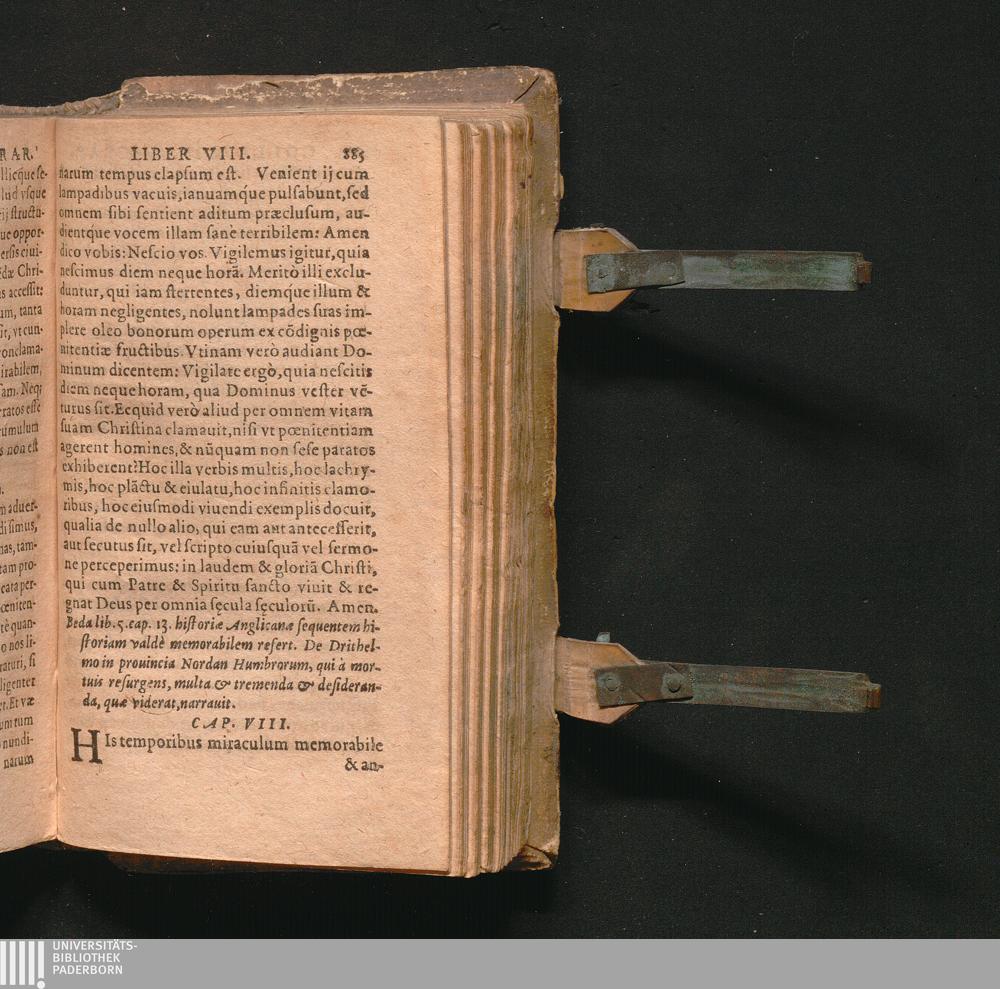 LIBER VIII. 885
narum tempus elapsum est. Venient ij cum
lampadibus vacuis, ianuamq́ue pulsabunt, sed
omnem sibi sentient aditum præclusum, au-
dientq́ue vocem illam sanè terribilem: Amen
dico vobis: Nescio vos. Vigilemus igitur, quia
nescimus diem neque horã. Meritò illi exclu-
duntur, qui iam stertentes, diemq́ue illum &
horam negligentes, nolunt lampades suas im-
plere oleo bonorum operum ex cõdignis pœ-
nitentiæ fructibus. Vtinam verò audiant Do-
minum dicentem: Vigilate ergò, quia nescitis
diem neque horam, qua Dominus vester vẽ-
turus sit. Ecquid verò aliud per omnem vitam
suam Christina clamauit, nisi vt pœnitentiam
agerent homines, & nũquam non sese paratos
exhiberent? Hoc illa verbis multis, hoc lachry-
mis, hoc plãctu & eiulatu, hoc infinitis clamo-
ribus, hoc eiusmodi viuendi exemplis docuit,
qualia de nullo alio, qui eam aut antecesserit,
aut secutus sit, vel scripto cuiusquã vel sermo-
ne perceperimus: in laudem & gloriã Christi,
qui cum Patre & Spiritu sancto viuit & re-
gnat Deus per omnia sęcula sęculorũ. Amen.
Beda lib. 5. cap. 13. historiæ Anglicanæ sequentem hi-
storiam valdè memorabilem refert. De Drithel-
mo in prouincia Nordan Humbrorum, qui à mor-
tuis resurgens, multa & tremenda & desideran-
da, quæ viderat, narrauit.
CAP. VIII.
HIs temporibus miraculum memorabile
& an-
RAR.
llicque se-
lud vsque
ij structu-
ue oppor-
ersis ciui-
dæ Chri-
s accessit:
um, tanta
it, vt cun-
onclama-
irabilem,
sam. Neq;
ratos esse
umulum
s non est
m aduer-
disimus,
nas, tam-
tam pro-
eata per-
œniten-
tè quan-
o nos li-
raturi, si
ligenter
r. Et væ
unt tum
nundi-
narum
UNIVERSITÄTS-
BIBLIOTHEK
PADERBORN